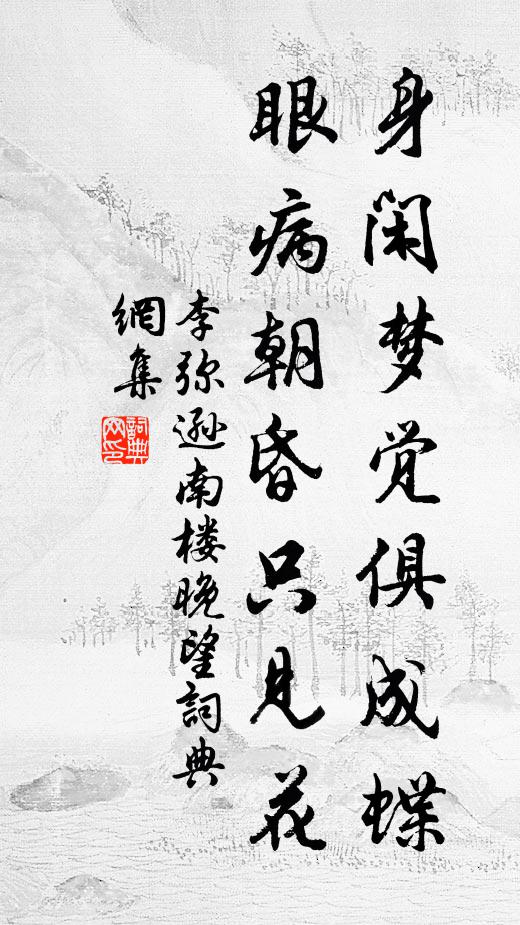 身闲梦觉俱成蝶
眼病朝昏只见花
李弥逊南楼晚望詞典
網集
詞典
网印